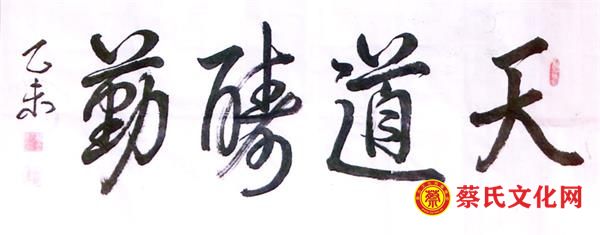 天道酬勤
乙未
蔡
蔡氏文化网